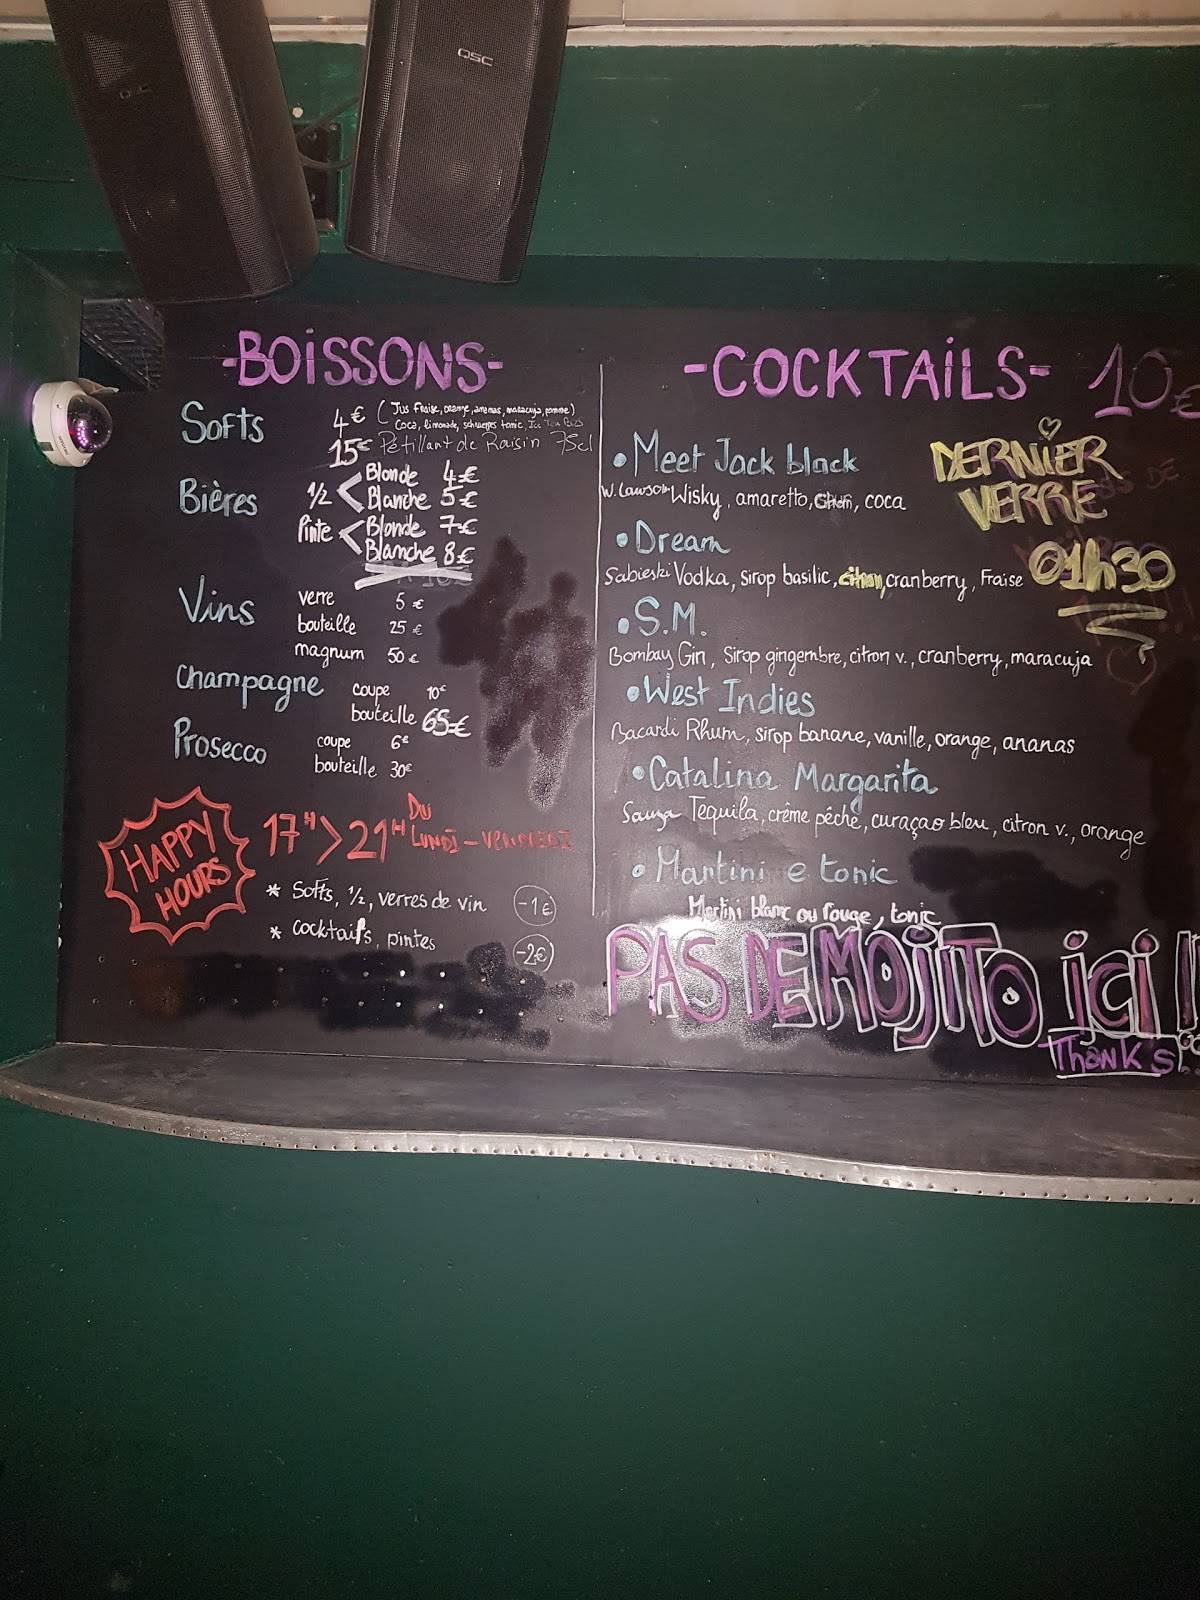 QSC
-BOISSONS-
Softs 4€ (Jus Fraise, orange, ananas, maracuja, pomme)
Coca, limonade, schweppes tonic, Ice Tea
15€ Pétillant de Raisin 75cl
Bières 1/2 < Blonde 4€
Blanche 5€
Pinte < Blonde 7€
Blanche 8€
Vins verre 5€
bouteille 25€
magnum 50€
Champagne coupe 10€
bouteille 65€
Prosecco coupe 6€
bouteille 30€
HAPPY HOURS
17H > 21H DU
LUNDI - VENDREDI
* Softs, 1/2, verres de vin -1€
* cocktails, pintes -2€
-COCKTAILS- 10€
• Meet Jack black
W. Lawson Wisky, amaretto, coca
• Dream
Sobieski Vodka, sirop basilic, citron, cranberry, Fraise
• S.M.
Bombay Gin, Sirop gingembre, citron v., cranberry, maracuja
• West Indies
Bacardi Rhum, sirop banane, vanille, orange, ananas
• Catalina Margarita
Sauza Tequila, crème pêche, curaçao bleu, citron v., orange
• Martini e tonic
Martini blanc ou rouge, tonic
DERNIER
VERRE
01h30
PAS DE MOJITO ici !!
Thanks